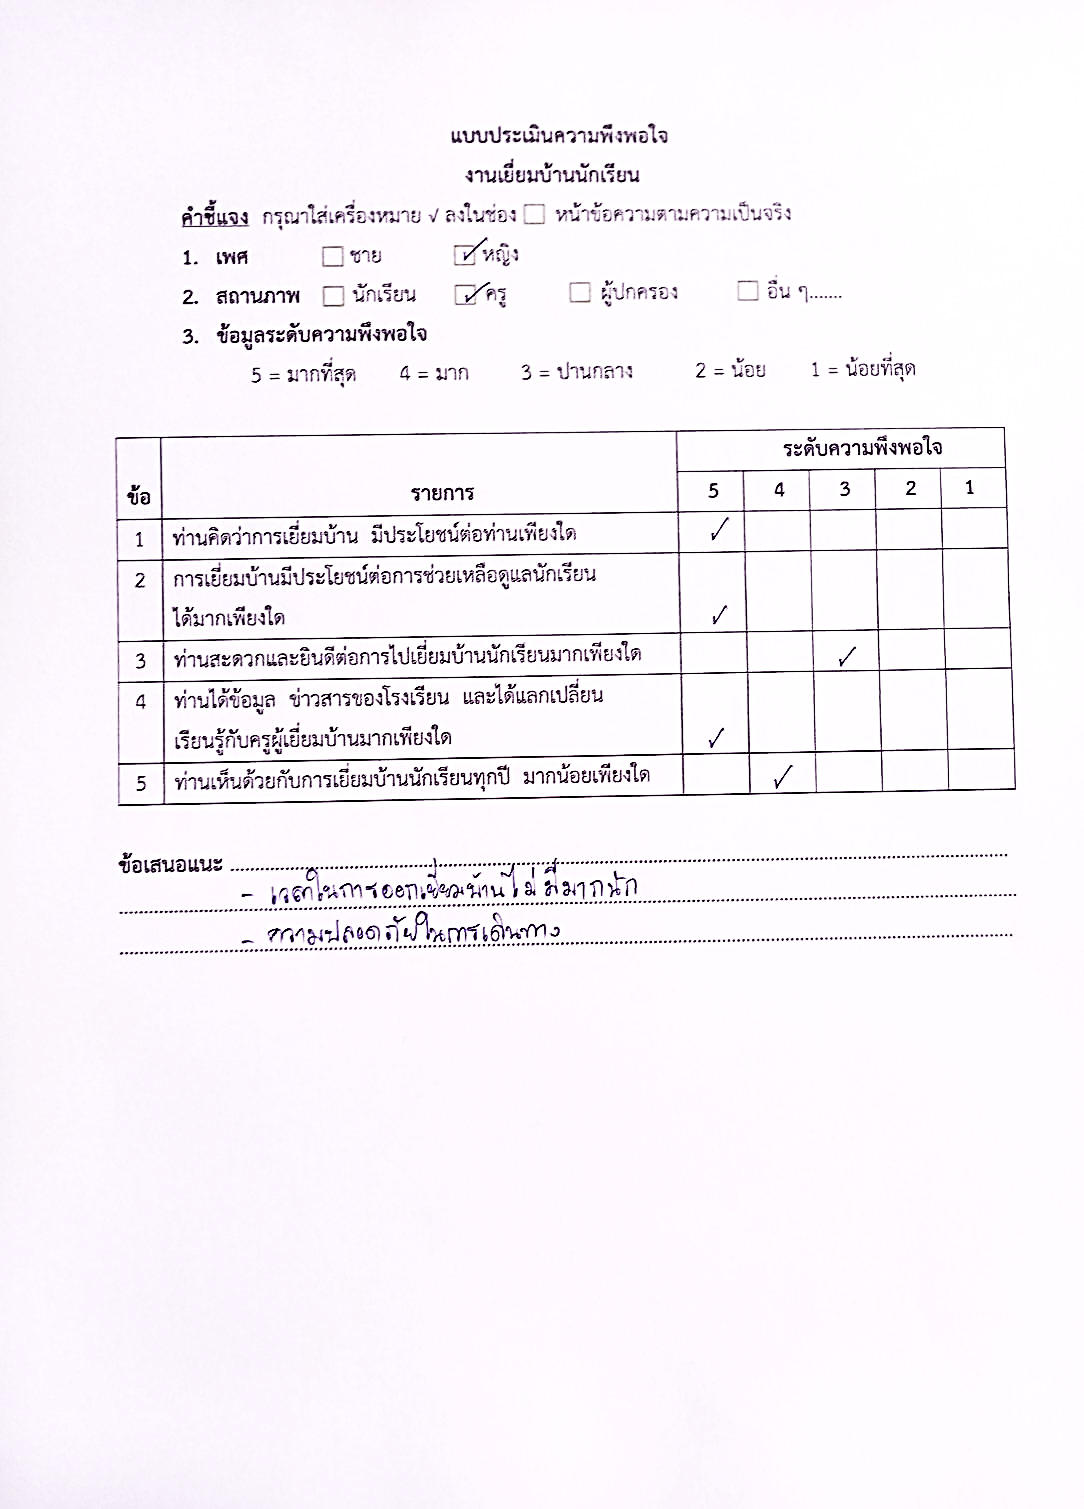 แบบประเมินความพึงพอใจ
งานเยี่ยมบ้านนักเรียน
คำชี้แจง กรุณาใส่เครื่องหมาย √ ลงในช่อง ☐ หน้าข้อความตามความเป็นจริง
1. เพศ ☐ ชาย ☑ หญิง
2. สถานภาพ ☐ นักเรียน ☑ ครู ☐ ผู้ปกครอง ☐ อื่น ๆ.......
3. ข้อมูลระดับความพึงพอใจ
5 = มากที่สุด 4 = มาก 3 = ปานกลาง 2 = น้อย 1 = น้อยที่สุด
ระดับความพึงพอใจ
ข้อ รายการ 5 4 3 2 1
1 ท่านคิดว่าการเยี่ยมบ้าน มีประโยชน์ต่อท่านเพียงใด ✓
2 การเยี่ยมบ้านมีประโยชน์ต่อการช่วยเหลือดูแลนักเรียน
ได้มากเพียงใด ✓
3 ท่านสะดวกและยินดีต่อการไปเยี่ยมบ้านนักเรียนมากเพียงใด ✓
4 ท่านได้ข้อมูล ข่าวสารของโรงเรียน และได้แลกเปลี่ยน
เรียนรู้กับครูผู้เยี่ยมบ้านมากเพียงใด ✓
5 ท่านเห็นด้วยกับการเยี่ยมบ้านนักเรียนทุกปี มากน้อยเพียงใด ✓
ข้อเสนอแนะ
- เวลาในการออกเยี่ยมบ้านไม่มีมากนัก
- ความปลอดภัยในการเดินทาง